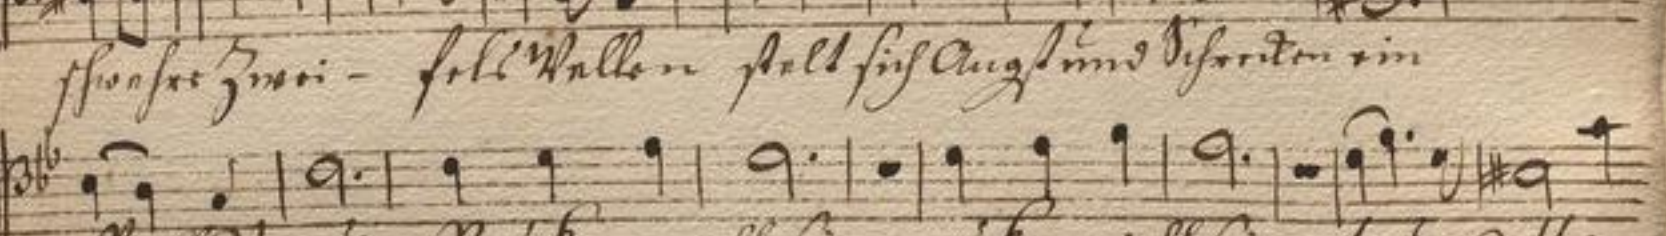 schwehre Zwei- fels Wellen stelt sich Angst und Schrecken ein